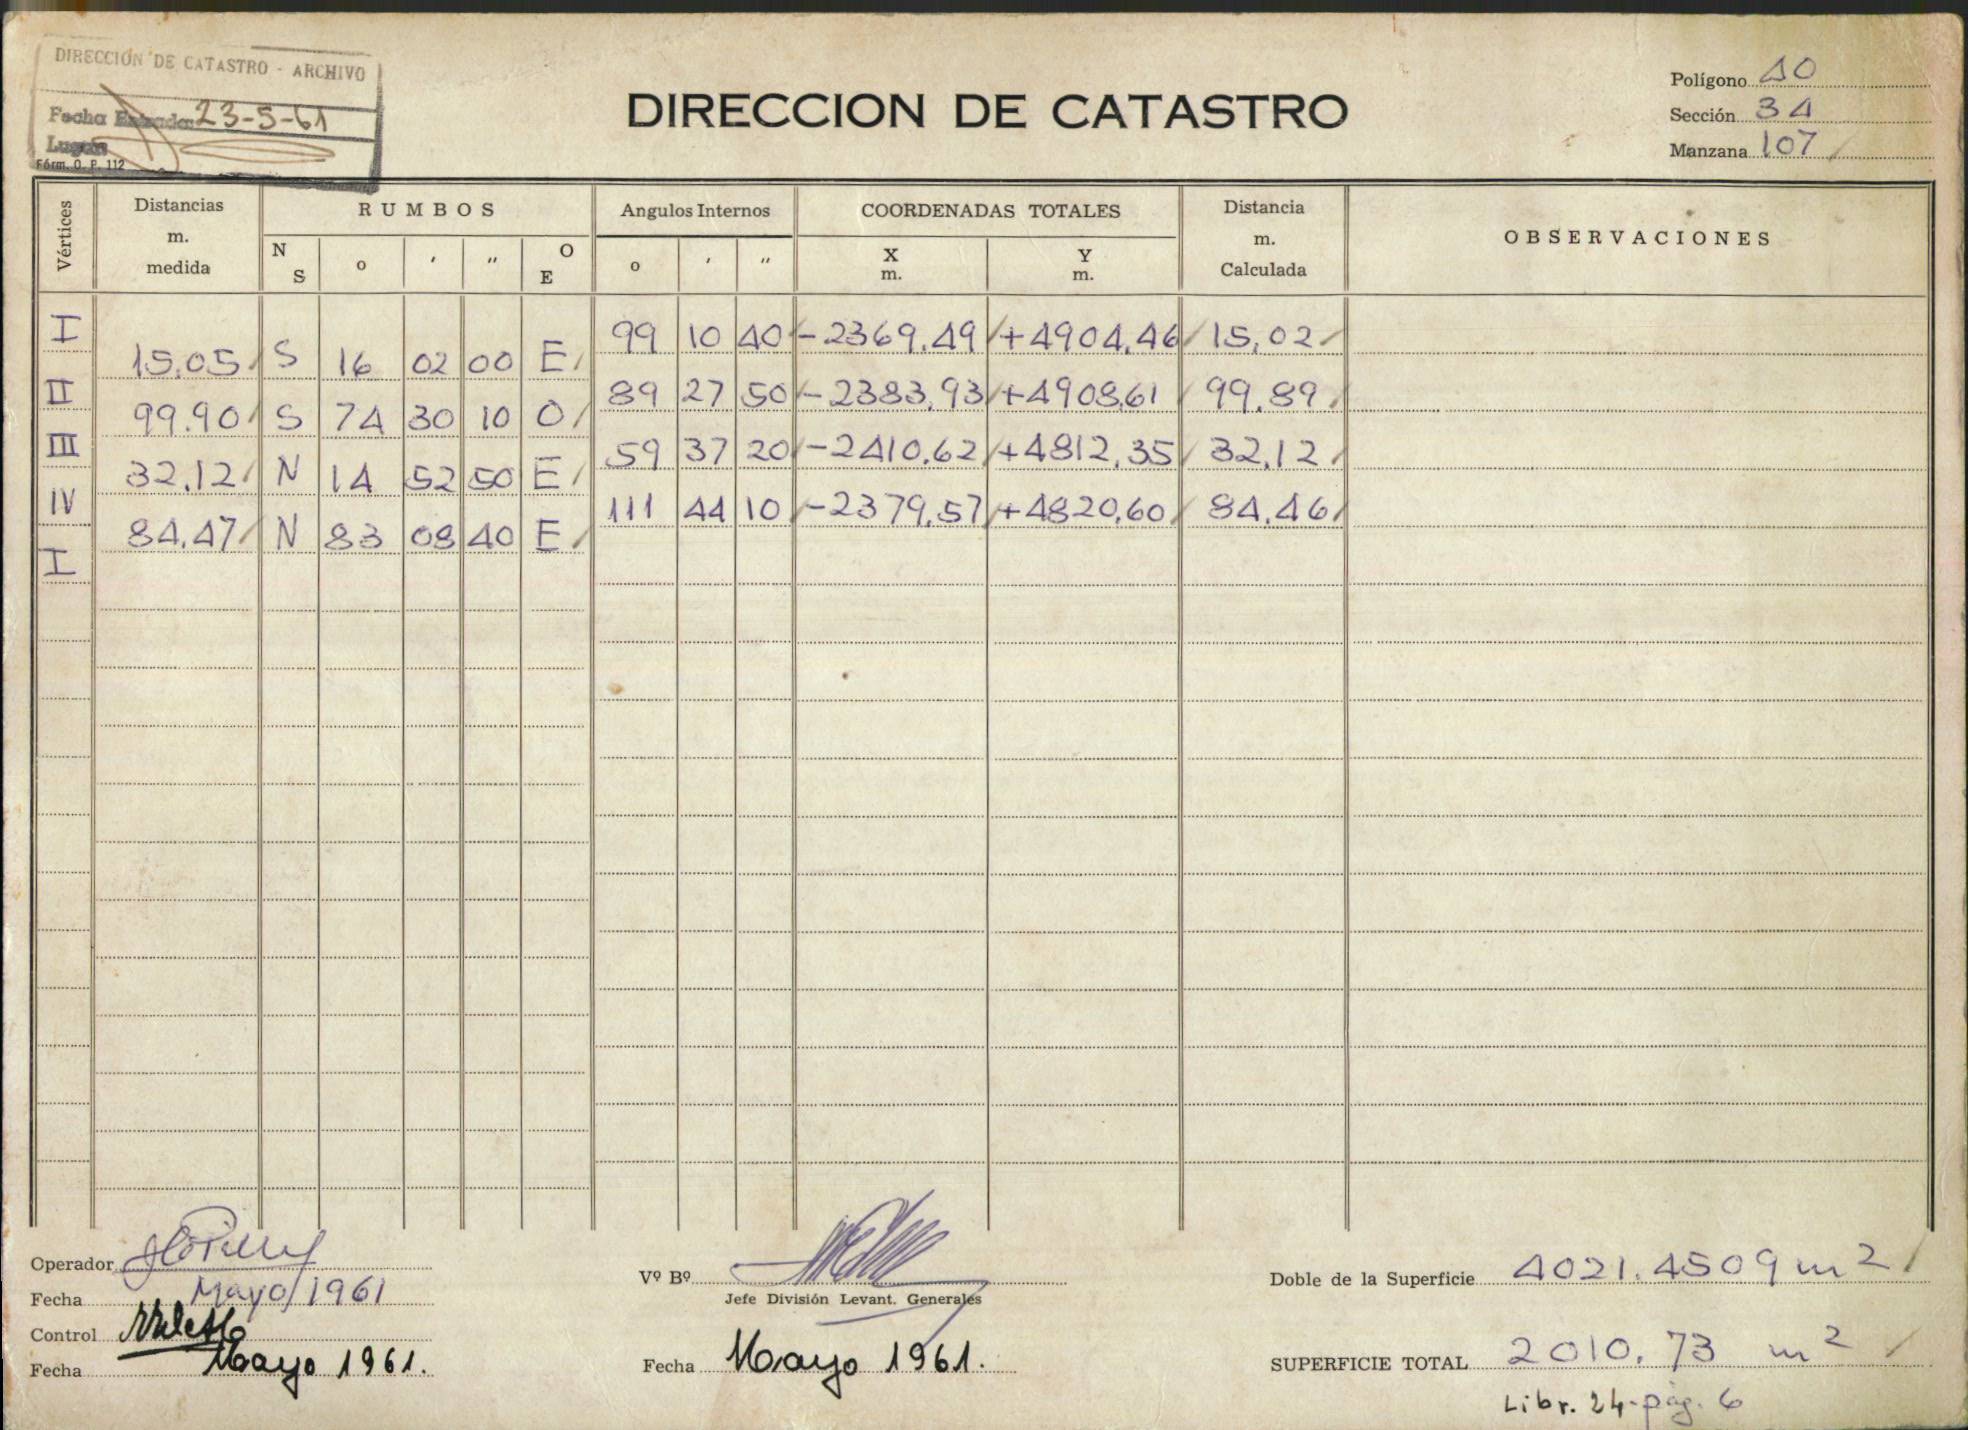 DIRECCIÓN DE CATASTRO - ARCHIVO
Fecha Entrada: 23-5-61
Fórm. O. P. 112
DIRECCION DE CATASTRO
Polígono 40
Sección 34
Manzana 107
Vértices
Distancias m. medida
RUMBOS
N S o ′ ″ O E
Angulos Internos
o ′ ″
COORDENADAS TOTALES
X m. Y m.
Distancia m. Calculada
OBSERVACIONES
I 99 10 40 -2369,49 +4904,46 15,02
15,05 S 16 02 00 E
II 89 27 50 -2383,93 +4908,61 99,89
99.90 S 74 30 10 O
III 59 37 20 -2410,62 +4812,35 32,12
32,12 N 14 52 50 E
IV 111 44 10 -2379,57 +4820,60 84,46
84,47 N 83 08 40 E
I
Operador
Fecha Mayo/1961
Control
Fecha Mayo 1961.
Vº Bº
Jefe División Levant. Generales
Fecha Mayo 1961.
Doble de la Superficie 4021.4509 m2
SUPERFICIE TOTAL 2010.73 m2
Libr. 24-pág. 6